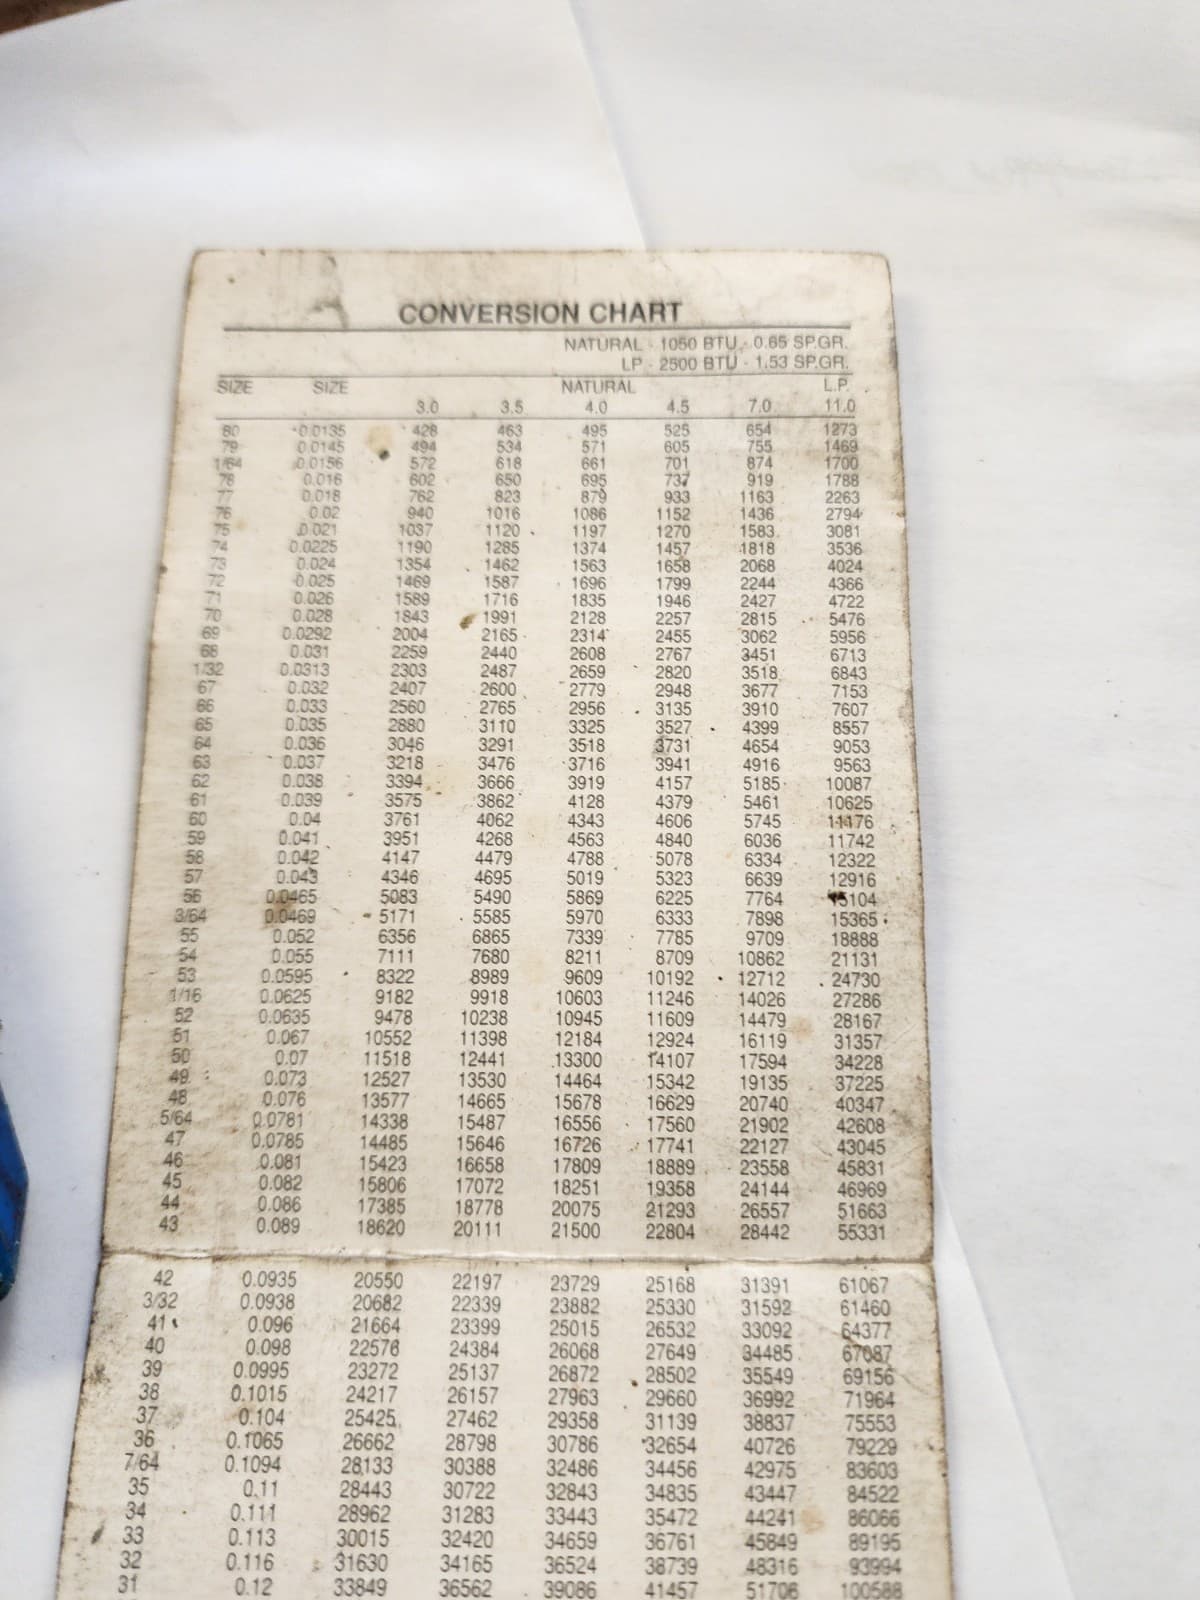 CONVERSION CHART
NATURAL - 1050 BTU - 0.65 SP.GR.
LP - 2500 BTU - 1.53 SP.GR.
SIZE SIZE NATURAL L.P.
3.0 3.5 4.0 4.5 7.0 11.0
80 0.0135 428 463 495 525 654 1273
79 0.0145 494 534 571 605 755 1469
1/64 0.0156 572 618 661 701 874 1700
78 0.016 602 650 695 737 919 1788
77 0.018 762 823 879 933 1163 2263
76 0.02 940 1016 1086 1152 1436 2794
75 0.021 1037 1120 1197 1270 1583 3081
74 0.0225 1190 1285 1374 1457 1818 3536
73 0.024 1354 1462 1563 1658 2068 4024
72 0.025 1469 1587 1696 1799 2244 4366
71 0.026 1589 1716 1835 1946 2427 4722
70 0.028 1843 1991 2128 2257 2815 5476
69 0.0292 2004 2165 2314 2455 3062 5956
68 0.031 2259 2440 2608 2767 3451 6713
1/32 0.0313 2303 2487 2659 2820 3518 6843
67 0.032 2407 2600 2779 2948 3677 7153
66 0.033 2560 2765 2956 3135 3910 7607
65 0.035 2880 3110 3325 3527 4399 8557
64 0.036 3046 3291 3518 3731 4654 9053
63 0.037 3218 3476 3716 3941 4916 9563
62 0.038 3394 3666 3919 4157 5185 10087
61 0.039 3575 3862 4128 4379 5461 10625
60 0.04 3761 4062 4343 4606 5745 11176
59 0.041 3951 4268 4563 4840 6036 11742
58 0.042 4147 4479 4788 5078 6334 12322
57 0.043 4346 4695 5019 5323 6639 12916
56 0.0465 5083 5490 5869 6225 7764 15104
3/64 0.0469 5171 5585 5970 6333 7898 15365
55 0.052 6356 6865 7339 7785 9709 18888
54 0.055 7111 7680 8211 8709 10862 21131
53 0.0595 8322 8989 9609 10192 12712 24730
1/16 0.0625 9182 9918 10603 11246 14026 27286
52 0.0635 9478 10238 10945 11609 14479 28167
51 0.067 10552 11398 12184 12924 16119 31357
50 0.07 11518 12441 13300 14107 17594 34228
49 0.073 12527 13530 14464 15342 19135 37225
48 0.076 13577 14665 15678 16629 20740 40347
5/64 0.0781 14338 15487 16556 17560 21902 42608
47 0.0785 14485 15646 16726 17741 22127 43045
46 0.081 15423 16658 17809 18889 23558 45831
45 0.082 15806 17072 18251 19358 24144 46969
44 0.086 17385 18778 20075 21293 26557 51663
43 0.089 18620 20111 21500 22804 28442 55331
42 0.0935 20550 22197 23729 25168 31391 61067
3/32 0.0938 20682 22339 23882 25330 31592 61460
41 0.096 21664 23399 25015 26532 33092 64377
40 0.098 22576 24384 26068 27649 34485 67087
39 0.0995 23272 25137 26872 28502 35549 69156
38 0.1015 24217 26157 27963 29660 36992 71964
37 0.104 25425 27462 29358 31139 38837 75553
36 0.1065 26662 28798 30786 32654 40726 79229
7/64 0.1094 28133 30388 32486 34456 42975 83603
35 0.11 28443 30722 32843 34835 43447 84522
34 0.111 28962 31283 33443 35472 44241 86066
33 0.113 30015 32420 34659 36761 45849 89195
32 0.116 31630 34165 36524 38739 48316 93994
31 0.12 33849 36562 39086 41457 51706 100588